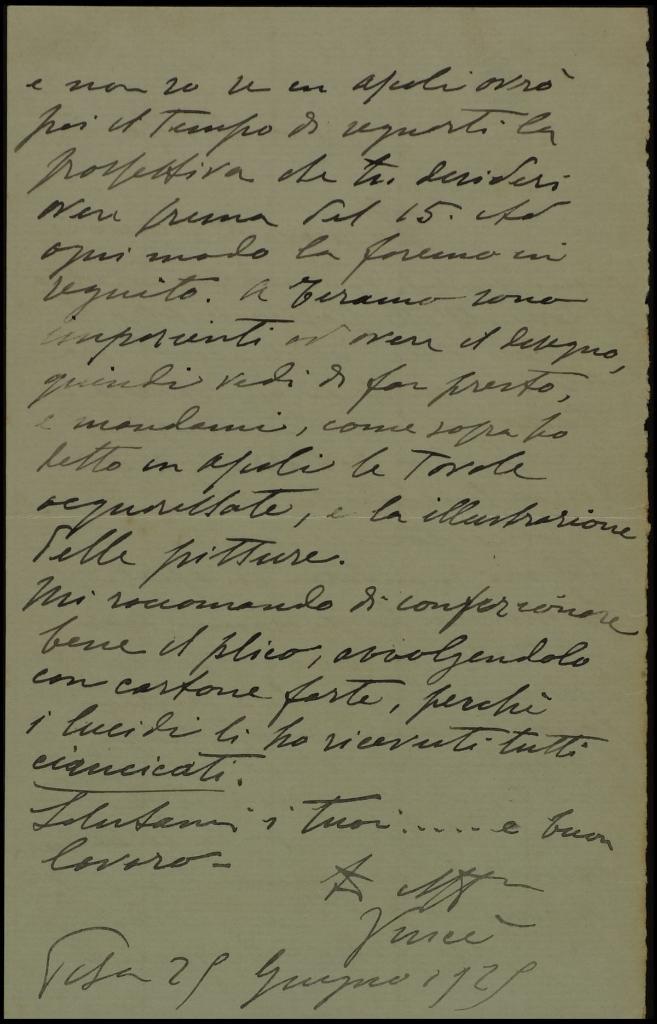 e non so se in Ascoli avrò
poi il tempo di seguirti la
prospettiva che tu desideri
avere prima del 15. Ad
ogni modo la faremo in
seguito. A Teramo sono
impazienti di avere il disegno,
quindi vedi di far presto,
e mandami, come sopra ho
detto in Ascoli le Tavole
acquarellate, e la illustrazione
delle pitture.
Mi raccomando di confezionare
bene il plico, avvolgendolo
con cartone forte, perchè
i lucidi li ho ricevuti tutti
ciancicati.
Salutami i tuoi..... e buon
lavoro -
Pisa 25 Giugno 1925